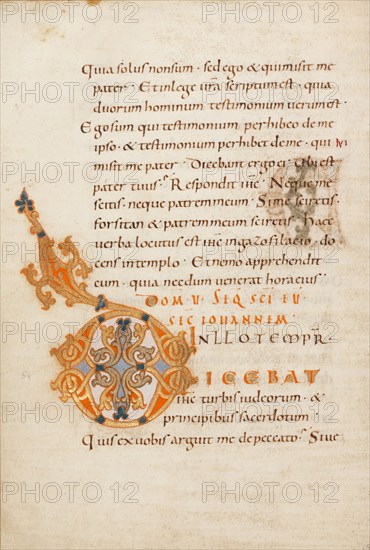 Quia solus non sum · sed ego & qui misit me
pater · Et in lege vr̄a scriptum est · quia
duorum hominum testimonium verum est ·
Ego sum qui testimonium perhibeo de me
ipso · & testimonium perhibet de me · qui
misit me pater · Dicebant ergo ei · Ubi est
pater tuus · Respondit ihc̄ · Neque me
scitis · neque patrem meum · Si me sciretis ·
forsitan & patrem meum sciretis · Haec
verba locutus est ihc̄ in gazofilacio · do
cens in templo · Et nemo apprehendit
eum · quia necdum venerat hora eius ·
DOM · V · SEQ SCI EU
SEC IOHANNEM ·
IN ILLO TEMPR̄ ·
DICEBAT
ihc̄ turbis iudeorum · &
principibus sacerdotum ·
Quis ex vobis arguit me de peccato · Si ve
PHOTO 12